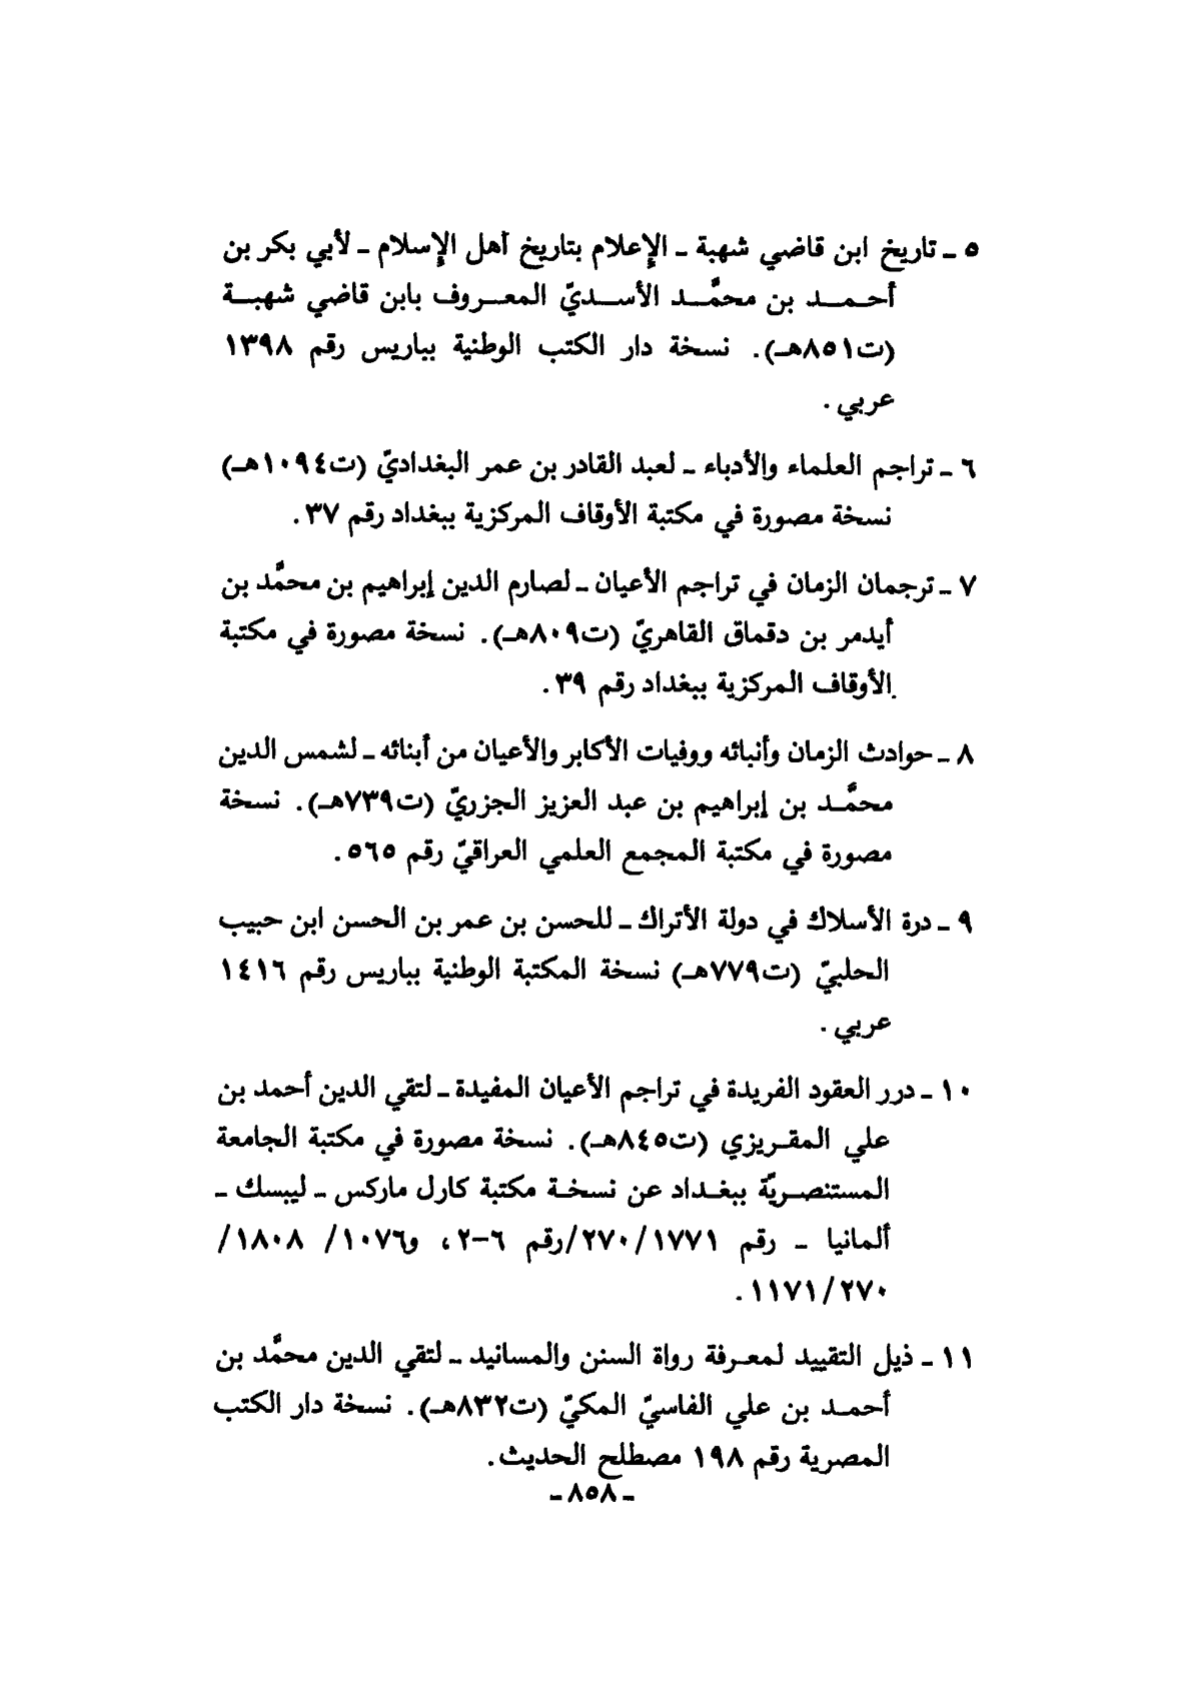 ٥ ـ تاريخ ابن قاضي شهبة ـ الإعلام بتاريخ أهل الإسلام ـ لأبي بكر بن
أحـمـــد بن محمَّـــد الأســديّ المعــروف بابن قاضي شهبــة
(ت٨٥١هـ). نسخة دار الكتب الوطنية بباريس رقم ١٣٩٨
عربي .
٦ ـ تراجم العلماء والأدباء ـ لعبد القادر بن عمر البغداديّ (ت١٠٩٤هـ)
نسخة مصورة في مكتبة الأوقاف المركزية ببغداد رقم ٣٧ .
٧ ـ ترجمان الزمان في تراجم الأعيان ـ لصارم الدين إبراهيم بن محمَّد بن
أيدمر بن دقماق القاهريّ (ت٨٠٩هـ). نسخة مصورة في مكتبة
الأوقاف المركزية ببغداد رقم ٣٩ .
٨ ـ حوادث الزمان وأنبائه ووفيات الأكابر والأعيان من أبنائه ـ لشمس الدين
محمَّــد بن إبراهيم بن عبد العزيز الجزريّ (ت٧٣٩هـ). نسخة
مصورة في مكتبة المجمع العلمي العراقيّ رقم ٥٦٥ .
٩ ـ درة الأسلاك في دولة الأتراك ـ للحسن بن عمر بن الحسن ابن حبيب
الحلبيّ (ت٧٧٩هـ) نسخة المكتبة الوطنية بباريس رقم ١٤١٦
عربي .
١٠ ـ درر العقود الفريدة في تراجم الأعيان المفيدة ـ لتقي الدين أحمد بن
علي المقــريزي (ت٨٤٥هـ). نسخة مصورة في مكتبة الجامعة
المستنصــريّة ببغــداد عن نسخــة مكتبة كارل ماركس ـ ليبسك ـ
ألمانيا ـ رقم ٢٧٠/١٧٧١/رقم ٦-٢، و١٠٧٦/ ١٨٠٨/
١١٧١/٢٧٠ .
١١ ـ ذيل التقييد لمعــرفة رواة السنن والمسانيد ـ لتقي الدين محمَّد بن
أحمــد بن علي الفاسيّ المكيّ (ت٨٣٢هـ). نسخة دار الكتب
المصرية رقم ١٩٨ مصطلح الحديث.
ـ ٨٥٨ ـ